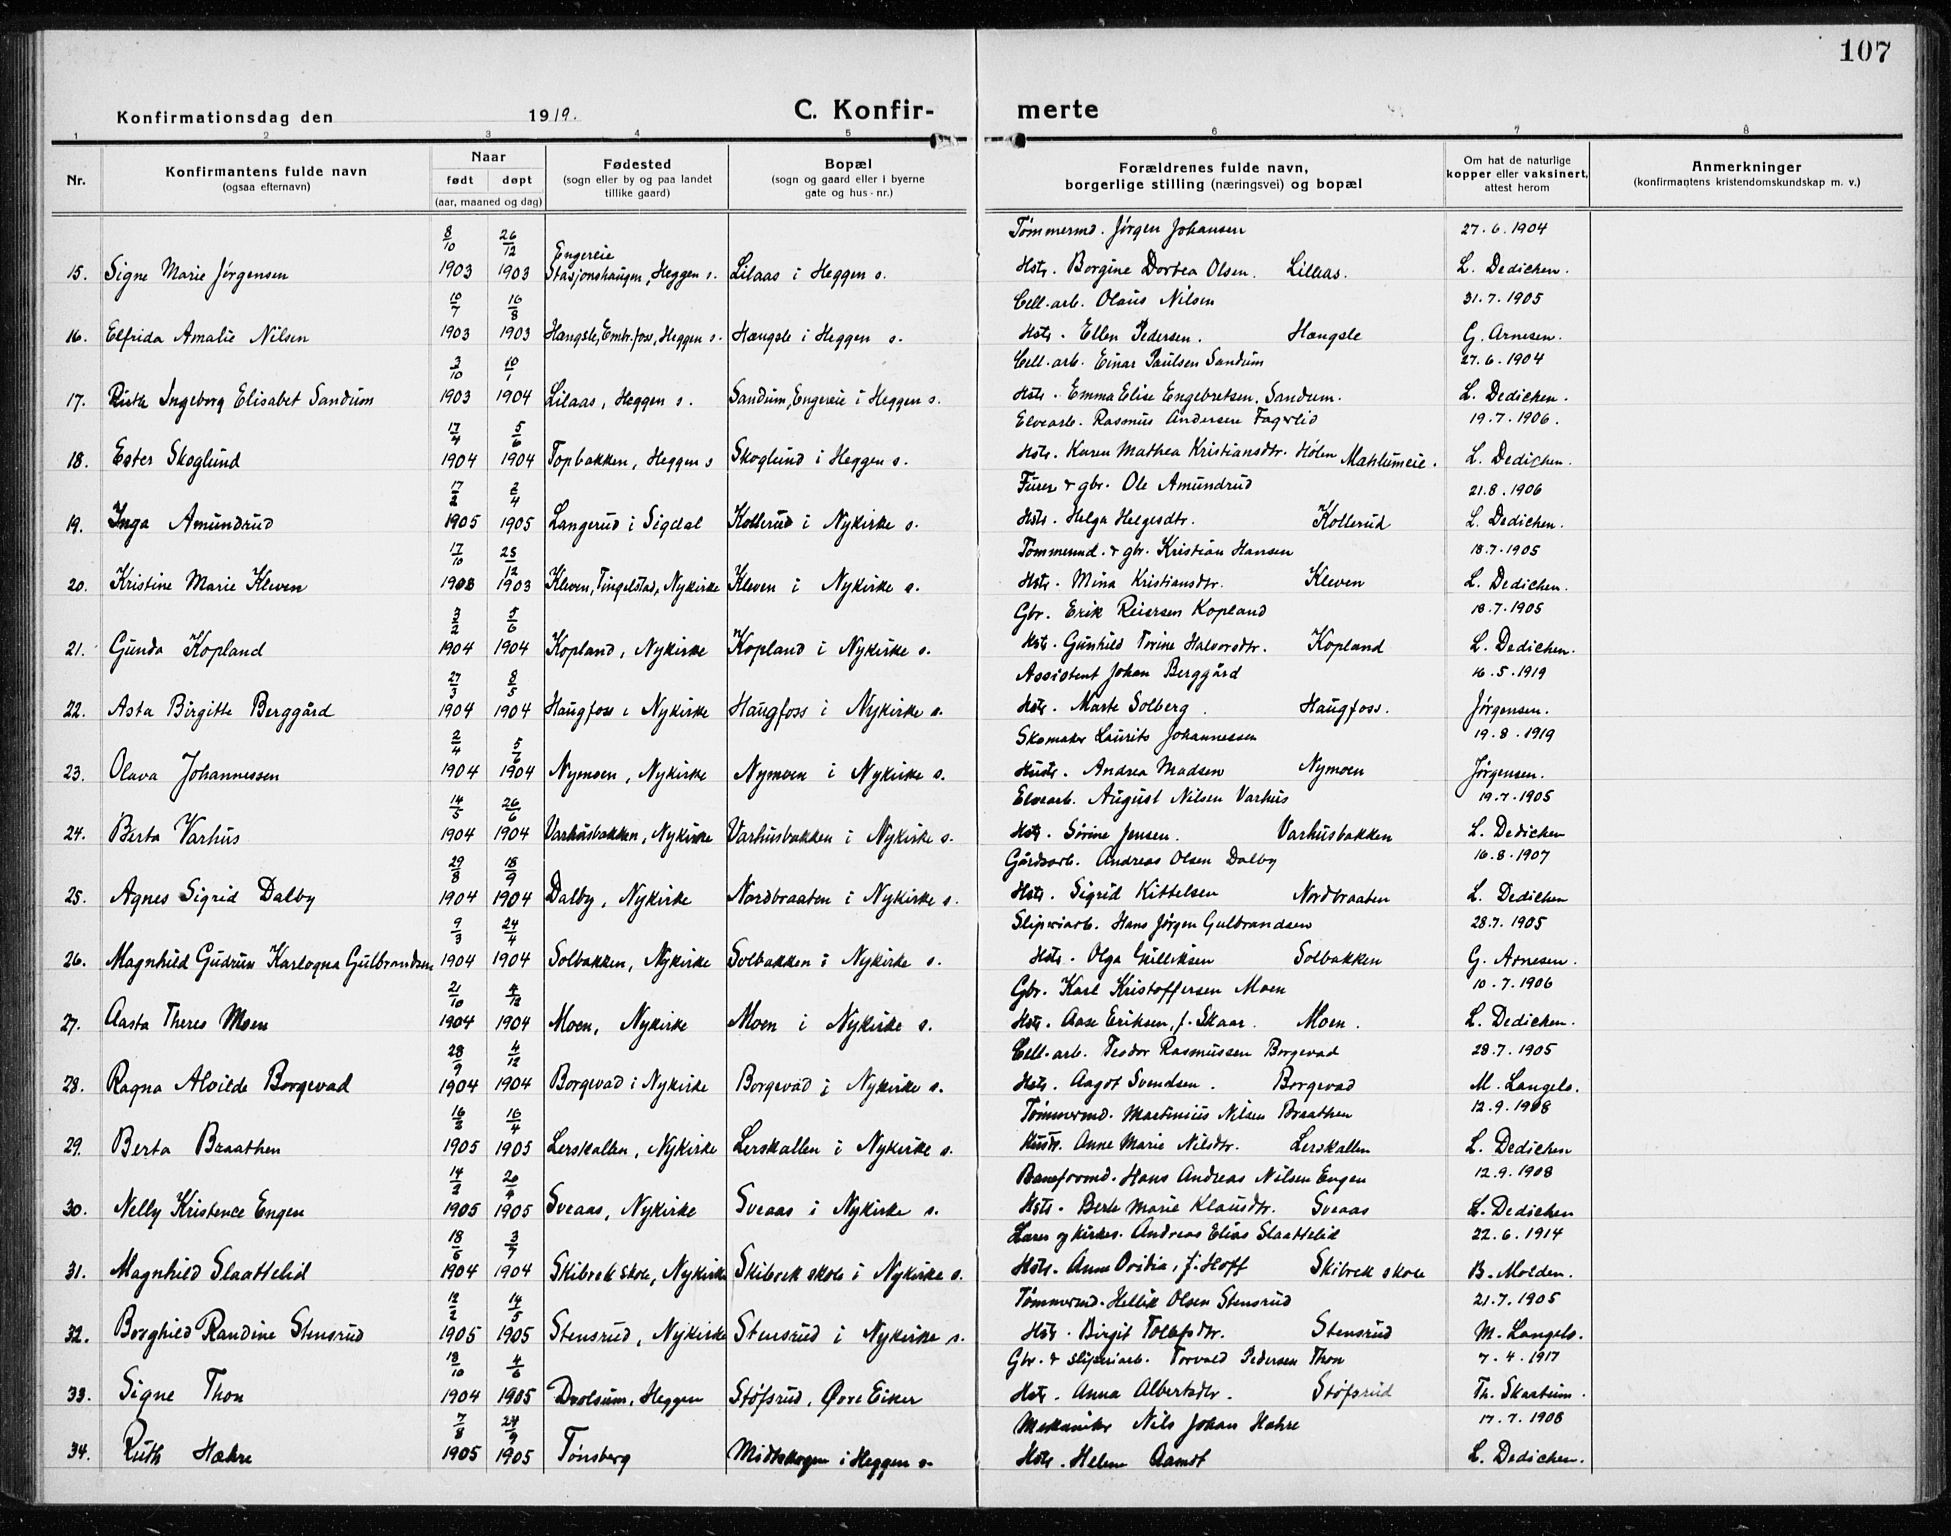 107
Konfirmationsdag den 1919. C. Konfir- merte
1 2 3 4 5 6 7 8
Nr. Konfirmantens fulde navn (ogsaa efternavn) Naar født døpt (aar, maaned og dag) Fødested (sogn eller by og paa landet tillike gaard) Bopæl (sogn og gaard eller i byerne gate og hus-nr.) Forældrenes fulde navn, borgerlige stilling (næringsvei) og bopæl Om hat de naturlige kopper eller vaksinert, attest herom Anmerkninger (konfirmantens kristendomskundskap m. v.)
8/10 26/12 Engereie Tømmermd. Jørgen Johansen 27.6.1904
15. Signe Marie Jørgensen 1903 1903 Stasjonshaugen, Heggen s. Lilaas i Heggen s. Hstr. Borgine Dortea Olsen. Lillaas. L. Dedichen.
10/7 16/8 Cell.arb. Olaus Nilsen 31.7.1905
16. Elfrida Amalie Nilsen 1903 1903 Hangsle, Embr.foss, Heggen s. Hængsle i Heggen s. Hstr. Ellen Pedersen. Hængsle G. Arnesen.
3/10 10/1 Cell.arb. Einar Paulsen Sandum 27.6.1904
17. Ruth Ingeborg Elisabet Sandum 1903 1904 Lilaas, Heggen s. Sandum, Engereie i Heggen s. Hstr. Emma Elise Engebretsen, Sandum. L. Dedichen.
17/4 5/6 Elvearb. Rasmus Andersen Fagerlid 19.7.1906.
18. Ester Skoglund 1904 1904 Topbakken, Heggen s Skoglund i Heggen s. Hstr. Karen Mathea Kristiansdtr. Hølen L. Dedichen.
17/2 2/4 Furer & gbr. Ole Amundrud 21.8.1906
19. Inga Amundrud 1905 1905 Langerud i Sigdal Kollerud i Nykirke s. Hstr. Helga Helgesdtr. Kollerud L. Dedichen.
17/10 25/12 Tømmermd. & gbr. Kristian Hansen 18.7.1905
20. Kristine Marie Kleven 1903 1903 Kleven, Tingelstad, Nykirke Kleven i Nykirke s. Hstr. Mina Kristiansdtr. Kleven L. Dedichen.
3/2 5/6 Gbr. Erik Reiersen Kopland 18.7.1905
21. Gunda Kopland 1904 1904 Kopland, Nykirke Kopland i Nykirke s. Hstr. Gunhild Torine Halvorsdtr. Kopland L. Dedichen.
27/3 8/5 Assistent Johan Berggård 16.5.1919
22. Asta Birgitte Berggård 1904 1904 Haugfoss i Nykirke Haugfoss i Nykirke s. Hstr. Marte Solberg. Haugfoss. Jørgensen.
2/4 5/6 Skomaker Laurits Johannessen 19.8.1919
23. Olava Johannessen 1904 1904 Nymoen, Nykirke Nymoen i Nykirke s. Hustr. Andrea Madsen Nymoen Jørgensen.
14/5 26/6 Elvearb. August Nilsen Varhus 19.7.1905
24. Berta Varhus 1904 1904 Varhusbakken, Nykirke Varhusbakken i Nykirke s. Hstr. Sørine Jensen. Varhusbakken L. Dedichen
29/8 18/9 Gårdsarb. Andreas Olsen Dalby 16.8.1907
25. Agnes Sigrid Dalby 1904 1904 Dalby, Nykirke Nordbraaten i Nykirke s. Hstr. Sigrid Kittelsen Nordbraaten L. Dedichen
9/3 24/4 Sliperiarb. Hans Jørgen Gulbrandsen 28.7.1905
26. Magnhild Gudrun Karlogna Gulbrandsen 1904 1904 Solbakken, Nykirke Solbakken i Nykirke s. Hstr. Olga Gulliksen Solbakken G. Arnesen.
21/10 4/12 Gbr. Karl Kristoffersen Moen 10.7.1906
27. Aasta Theres Moen 1904 1904 Moen, Nykirke Moen i Nykirke s. Hstr. Aase Eriksen, f. Skaar. Moen. L. Dedichen.
28/9 4/12 Cell.arb. Teodor Rasmussen Borgevad 28.7.1905
28. Ragna Alvilde Borgevad 1904 1904 Borgevad i Nykirke Borgevad i Nykirke s. Hstr. Aagot Svendsen. Borgevad M. Langels.
16/2 16/4 Tømmermd. Martinius Nilsen Braathen 12.9.1908
29. Berta Braathen 1905 1905 Lerskallen, Nykirke Lerskallen i Nykirke s. Hustr. Anne Marie Nilsdtr. Lerskallen L. Dedichen
14/2 20/4 Baneformd. Hans Andreas Nilsen Engen 12.9.1908
30. Nelly Kristence Engen 1905 1905 Sveaas, Nykirke Sveaas i Nykirke s. Hstr. Berte Marie Klausdtr. Sveaas L. Dedichen
18/6 3/7 Lærer og kirkes. Andreas Elias Slaattelid 22.6.1914
31. Magnhild Slaattelid 1904 1904 Skibrek skole, Nykirke Skibrek skole i Nykirke s. Hstr. Anne Ovidia, f. Hoff Skibrek skole B. Molden.
12/2 14/5 Tømmermd. Hellik Olsen Stensrud 21.7.1905
32. Borghild Randine Stensrud 1905 1905 Stensrud, Nykirke Stensrud i Nykirke s. Hstr. Birgit Tolefsdtr. Stensrud M. Langels.
18/10 4/6 Gbr. & sliperiarb. Torvald Pedersen Thon 7.4.1917
33. Signe Thon 1904 1905 Dvolsum, Heggen Støfsrud, Øvre Eiker Hstr. Anna Albertsdtr. Støfsrud Th. Skartum.
7/8 24/9 Mekaniker Nils Johan Hæhre 17.7.1908
34. Ruth Hæhre 1905 1905 Tønsberg Midtskogen i Heggen s. Hstr. Helene Aamot L. Dedichen.